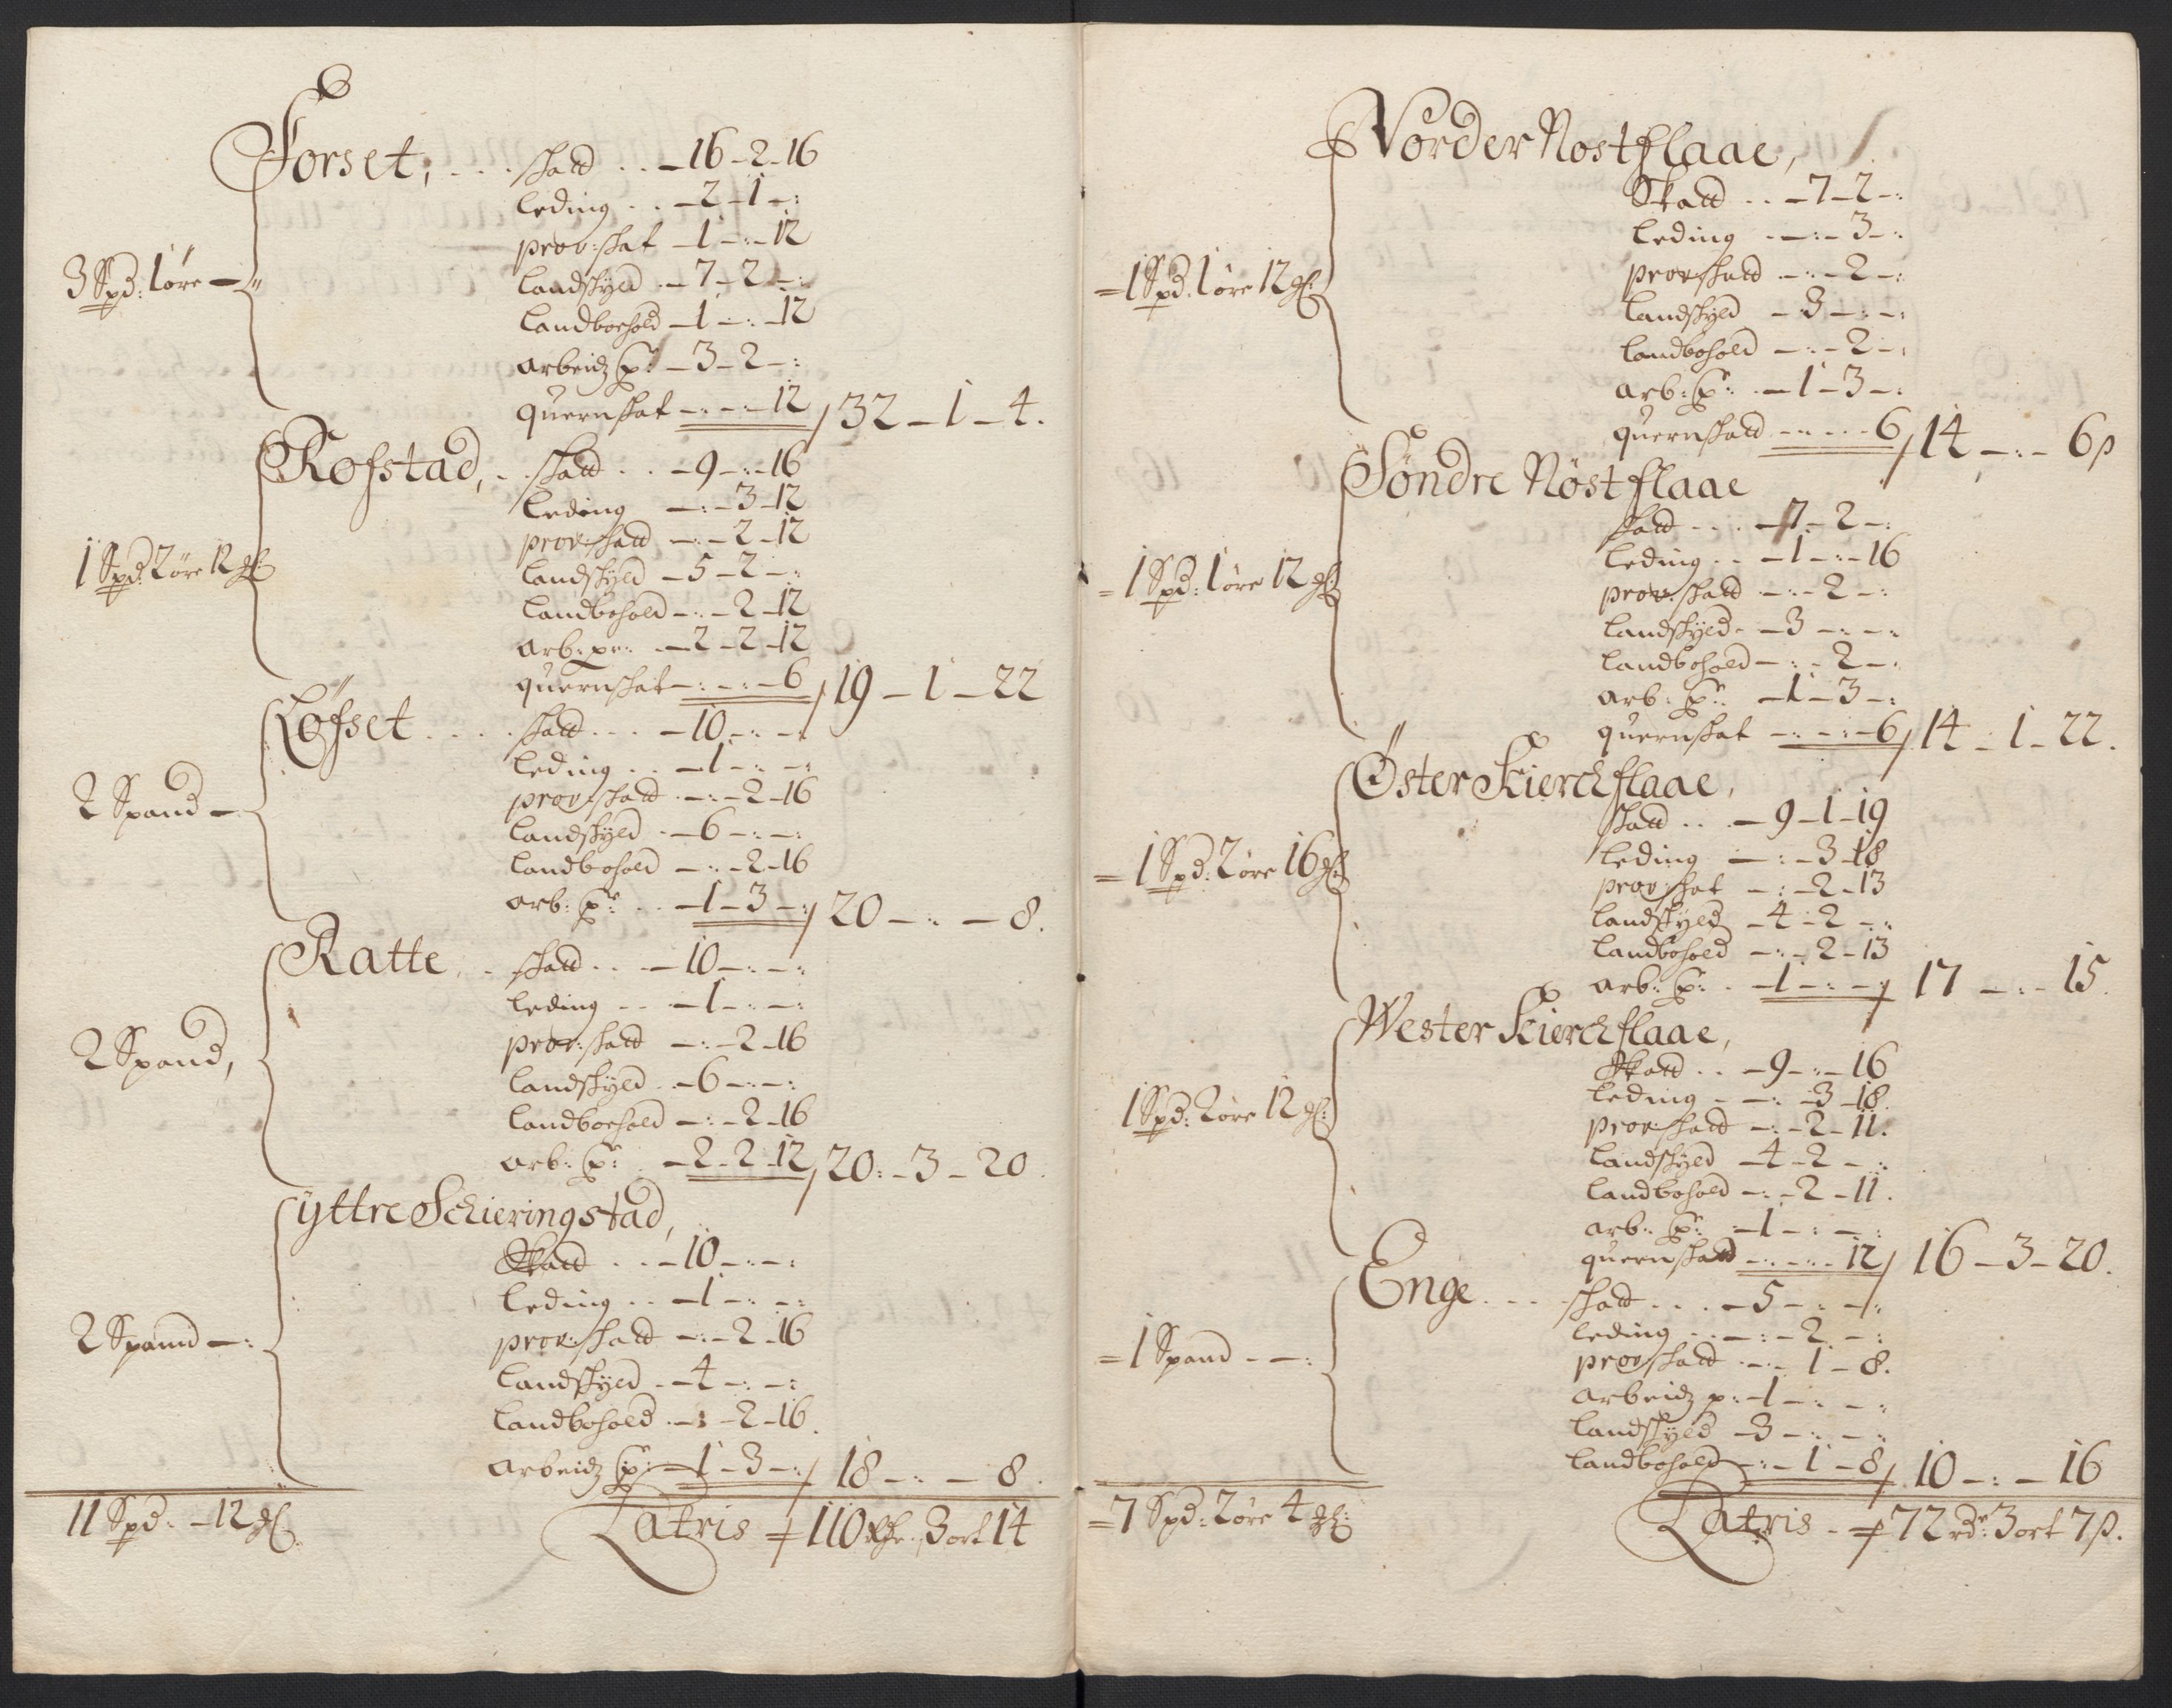 Forset, . . . skatt . . – 16 – 2 – 16
leding . . – 2 – 1 – :
prov: skat – 1 – : – 12
3 Spd: 1 øre –
landskyld . – 7 – 2 – :
landboehold – 1 – : – 12
arbeidz p: – 3 – 2 – :
quernskat – : – : – 12 / 32 – 1 – 4.
Rofstad, . . skatt . . – 9 – : – 16
leding – : – 3 – 12
prov: skatt – : – 2 – 12
1 Spd: 2 øre 12
landskyld – 5 – 2 – :
landbohold – : – 2 – 12
arb: pr: . – 2 – 2 – 12
quernskat – : – : – 6 / 19 – 1 – 22
Løfset . . . . skatt . . . – 10 – : – :
leding . . – 1 – : – :
prov: skatt . – : – 2 – 16
2 Spand –
landskyld . – 6 – : – :
landbohold – : – 2 – 16
arb: pr: . . – 1 – 3 – : / 20 – : – 8.
Ratte . . skatt . . – 10 – : – :
leding . . – 1 – : – :
prov: skatt – : – 2 – 16
2 Spand,
landskyld . – 6 – : – :
landboehold – : – 2 – 16
arb: pr: . – 2 – 2 – 12 / 20 : – 3 – 20.
ÿttre Schieringstad,
Skatt . . – 10 – : – :
leding . . – 1 – : – :
prov: skatt – : – 2 – 16
2 Spannd – :
landskyld . – 4 – : – :
landbohold . – : – 2 – 16.
arbeidz pr: – 1 – 3 – : / 18 – : – 8.
11 Spd: – 12
Latris 110 Rdr. 3 ort 14
Norder Nostflaae,
Skatt . . – 7 – 2 – :
leding – : – 3 – :
prov skatt – : – 2 – :
= 1 Spd. 1 øre 12
landskyld – 3 – : – :
landbohold – : – 2 – :
arb: pr: . – 1 – 3 – :
quernskatt – : – : – 6 / 14 – : – 6 ß
Søndre Nøstflaae
skatt . . . – 7 – 2 – :
leding . . – 1 – : – 16
prov: skatt – : – 2 – :
= 1 Spd: 1 øre 12
landskyld – – 3 – : – :
landbohold – : – 2 – :
arb: pr: – 1 – 3 – :
quernskat – : – : – 6 / 14 – 1 – 22.
Øster Kierchflaae,
skatt . . . – 9 – 1 – 19
leding – : – 3 – 18
prov: skat – : – 2 – 13
= 1 Spd: 2 øre 16
landskyld – 4 – 2 – :
landbohold – : – 2 – 13
arb: pr: . – 1 – : – : / 17 – : – 15.
Wester Kierchflaae,
Skatt . . – 9 – : – 16
leding – – : – 3 – 18.
prov: skatt – : – 2 – 11.
1 Spd: 2 øre 12
landskyld – 4 – 2 – :
landbohold – : – 2 – 11.
arb: pr: – 1 – : – :
quernskatt – : – : – 12 / 16 – 3 – 20.
Enge . . . skatt . . . – 5 – : – :
leding . . – : – 2 – :
prov skatt . – : – 1 – 8.
= 1 Spand – – :
arbeidz p: – 1 – : – :
landskyld – 3 – : – :
landbohold – : – 1 – 8 / 10 – : – 16
= 7 Spd: 2 øre 4
Latris – 72 rdr: 3 ort 7 ß.